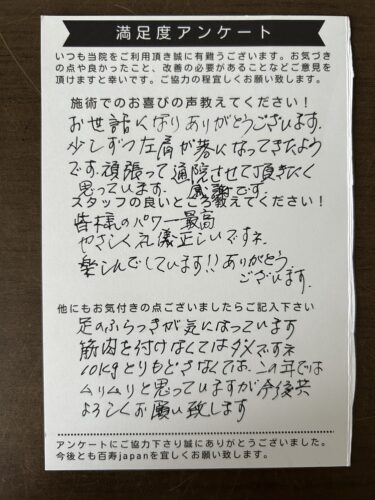 満足度アンケート
いつも当院をご利用頂き誠に有難うございます。お気づき
の点や良かったこと、改善の必要があることなどご意見を
頂けますと幸いです。ご協力の程宜しくお願い致します。
施術でのお喜びの声教えてください！
お世話になりありがとうございます.
少しずつ左肩が楽になってきたよう
です.頑張って通院させて頂きたく
思っています. 感謝です.
スタッフの良いところ教えてください！
皆様のパワー最高
やさしく礼儀正しいですネ
楽しんでしています!!ありがとう
ございます.
他にもお気付きの点ございましたらご記入下さい
足のふらつきが気になっています
筋肉を付けなくてはダメですネ
10Kgとりもどさなくては、この年では
ムリムリと思っていますが今後共
よろしくお願い致します
アンケートにご協力下さり誠にありがとうございました。
今後とも百寿japanを宜しくお願い致します。